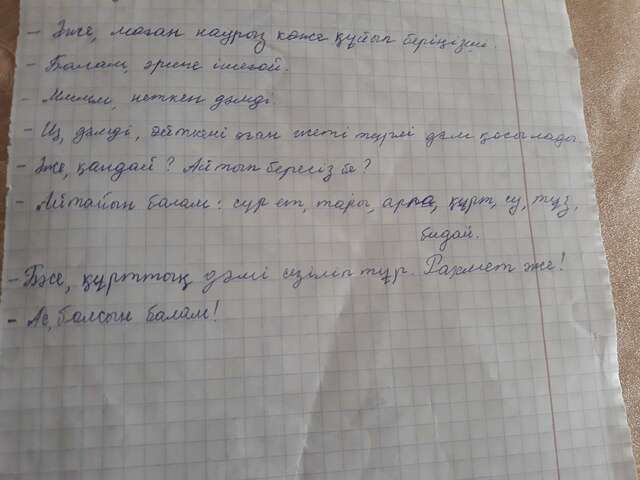 - Әже, маған наурыз көже құйып беріңізші.
- Балам, әрине ішегой.
- Мммм, неткен дәмді
- Иә, дәмді, өйткені оған жеті түрлі дәм қосылады.
- Әже, қандай? Айтып бересіз бе?
- Айтайын балам: сүр ет, тары, арпа, құрт, су, тұз,
бидай.
- Бәсе, құрттың дәмі сезіліп тұр. Рахмет әже!
- Ас, болсын балам!